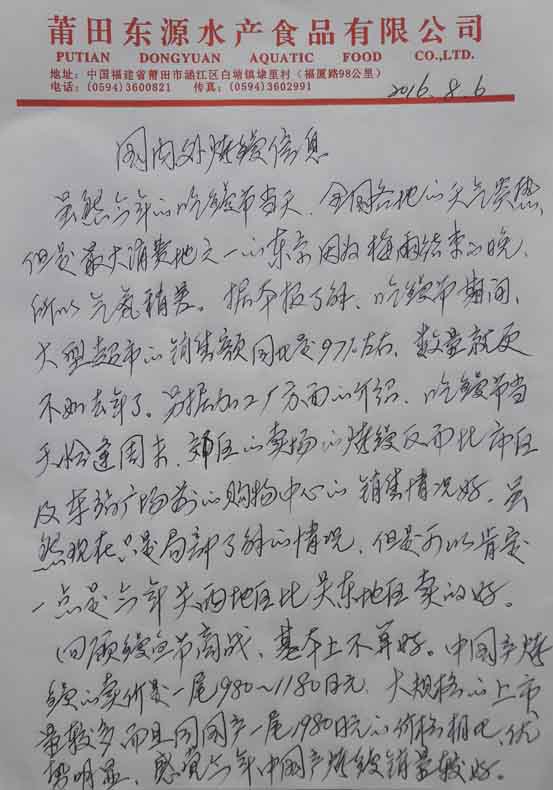 莆田东源水产食品有限公司
PUTIAN DONGYUAN AQUATIC FOOD CO.,LTD.
地址：中国福建省莆田市涵江区白塘镇埭里村（福厦路98公里）
电话：(0594)3600821 传真：(0594)3602991
2016.8.6
国内外烤鳗信息
虽然今年的吃鳗节当天，全国各地的天气炎热，
但是最大消费地之一的东京因为梅雨结束的晚，
所以气氛稍差。据本报了解，吃鳗节期间，
大型超市的销售额同比是97%左右，数量就更
不如去年了。另据加工厂方面的介绍，吃鳗节当
天恰逢周末，郊区的卖场的烤鳗反而比市区
及车站广场前的购物中心的销售情况好，虽
然现在只是局部了解的情况，但是可以肯定
一点是今年关西地区比关东地区卖的好。
回顾鳗鱼节商战，基本上不算好。中国产烤
鳗的卖价是一尾980～1180日元，大规格的上市
量较多而且同国产一尾1980日元的价格相比，优
势明显，感觉今年中国产烤鳗销量较好。